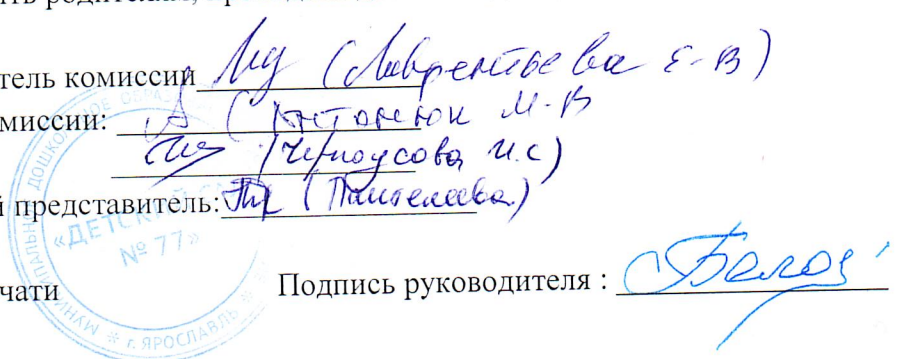 ть родителям,
тель комиссии (Лаврентьева Е.В)
миссии: (Антонюк М.В
(Черноусова И.С)
й представитель: (Пантелеева.)
чати Подпись руководителя :
МУНИЦИПАЛЬНОЕ ДОШКОЛЬНОЕ ОБРАЗ
«ДЕТСКИЙ
№ 77»
г. ЯРОСЛАВЛЬ